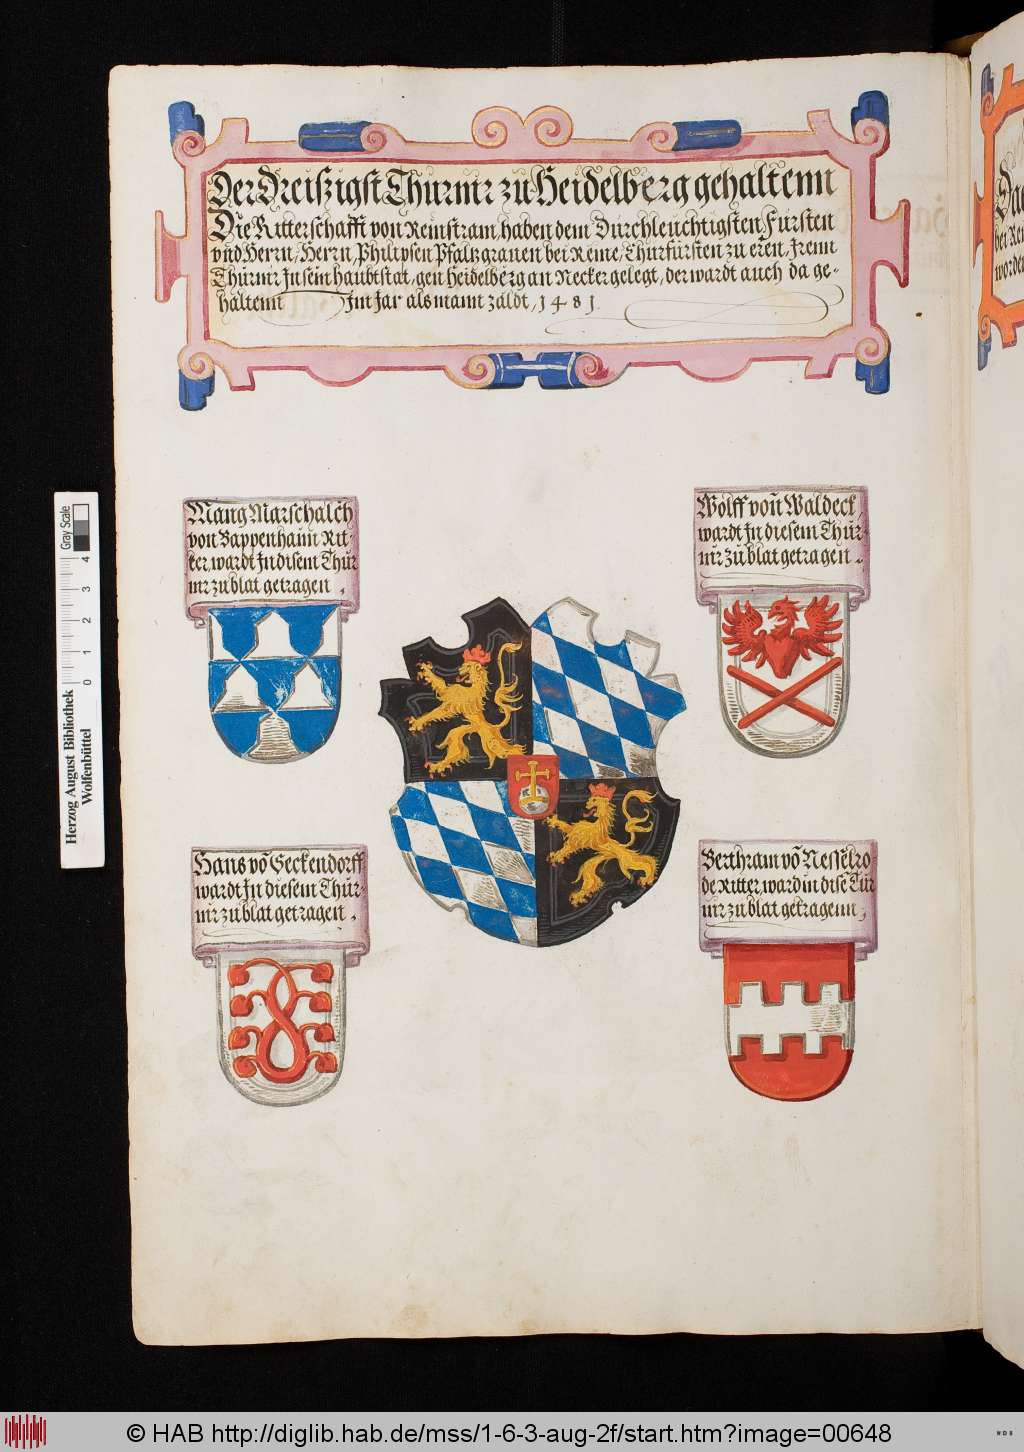 Der Dreiszigst Thurnir zu Heidelberg gehaltenn
Die Ritterschafft von Reinstram, haben dem Durchleuchtigsten Fursten
vnd Herrn, Herrn Philipsen Pfaltzgrauen bei Reine, Churfursten zu eren, Irenn
Thurnir In sein haubtstat, gen Heidelberg an Necker gelegt, der wardt auch da ge-
haltenn Im Jar als mann zaldt, 1481.
Mang Marschalch
von Bappenhaim Rit-
ter, wardt In disem Thur
nir zu blat getragen,
Wolff von Waldeck,
wardt In diesem Thur-
nir zu blat getragen.
Hans vō Seckendorff
wardt In diesem Thur-
nir zu blat getragen.
Berthram vō Nesselro
de Ritter, ward in dise Tur
nir zu blat getragenn,
Da
bei Rei
worde
Herzog August Bibliothek
Wolfenbüttel
0 1 2 3 4
Gray Scale
© HAB http://diglib.hab.de/mss/1-6-3-aug-2f/start.htm?image=00648